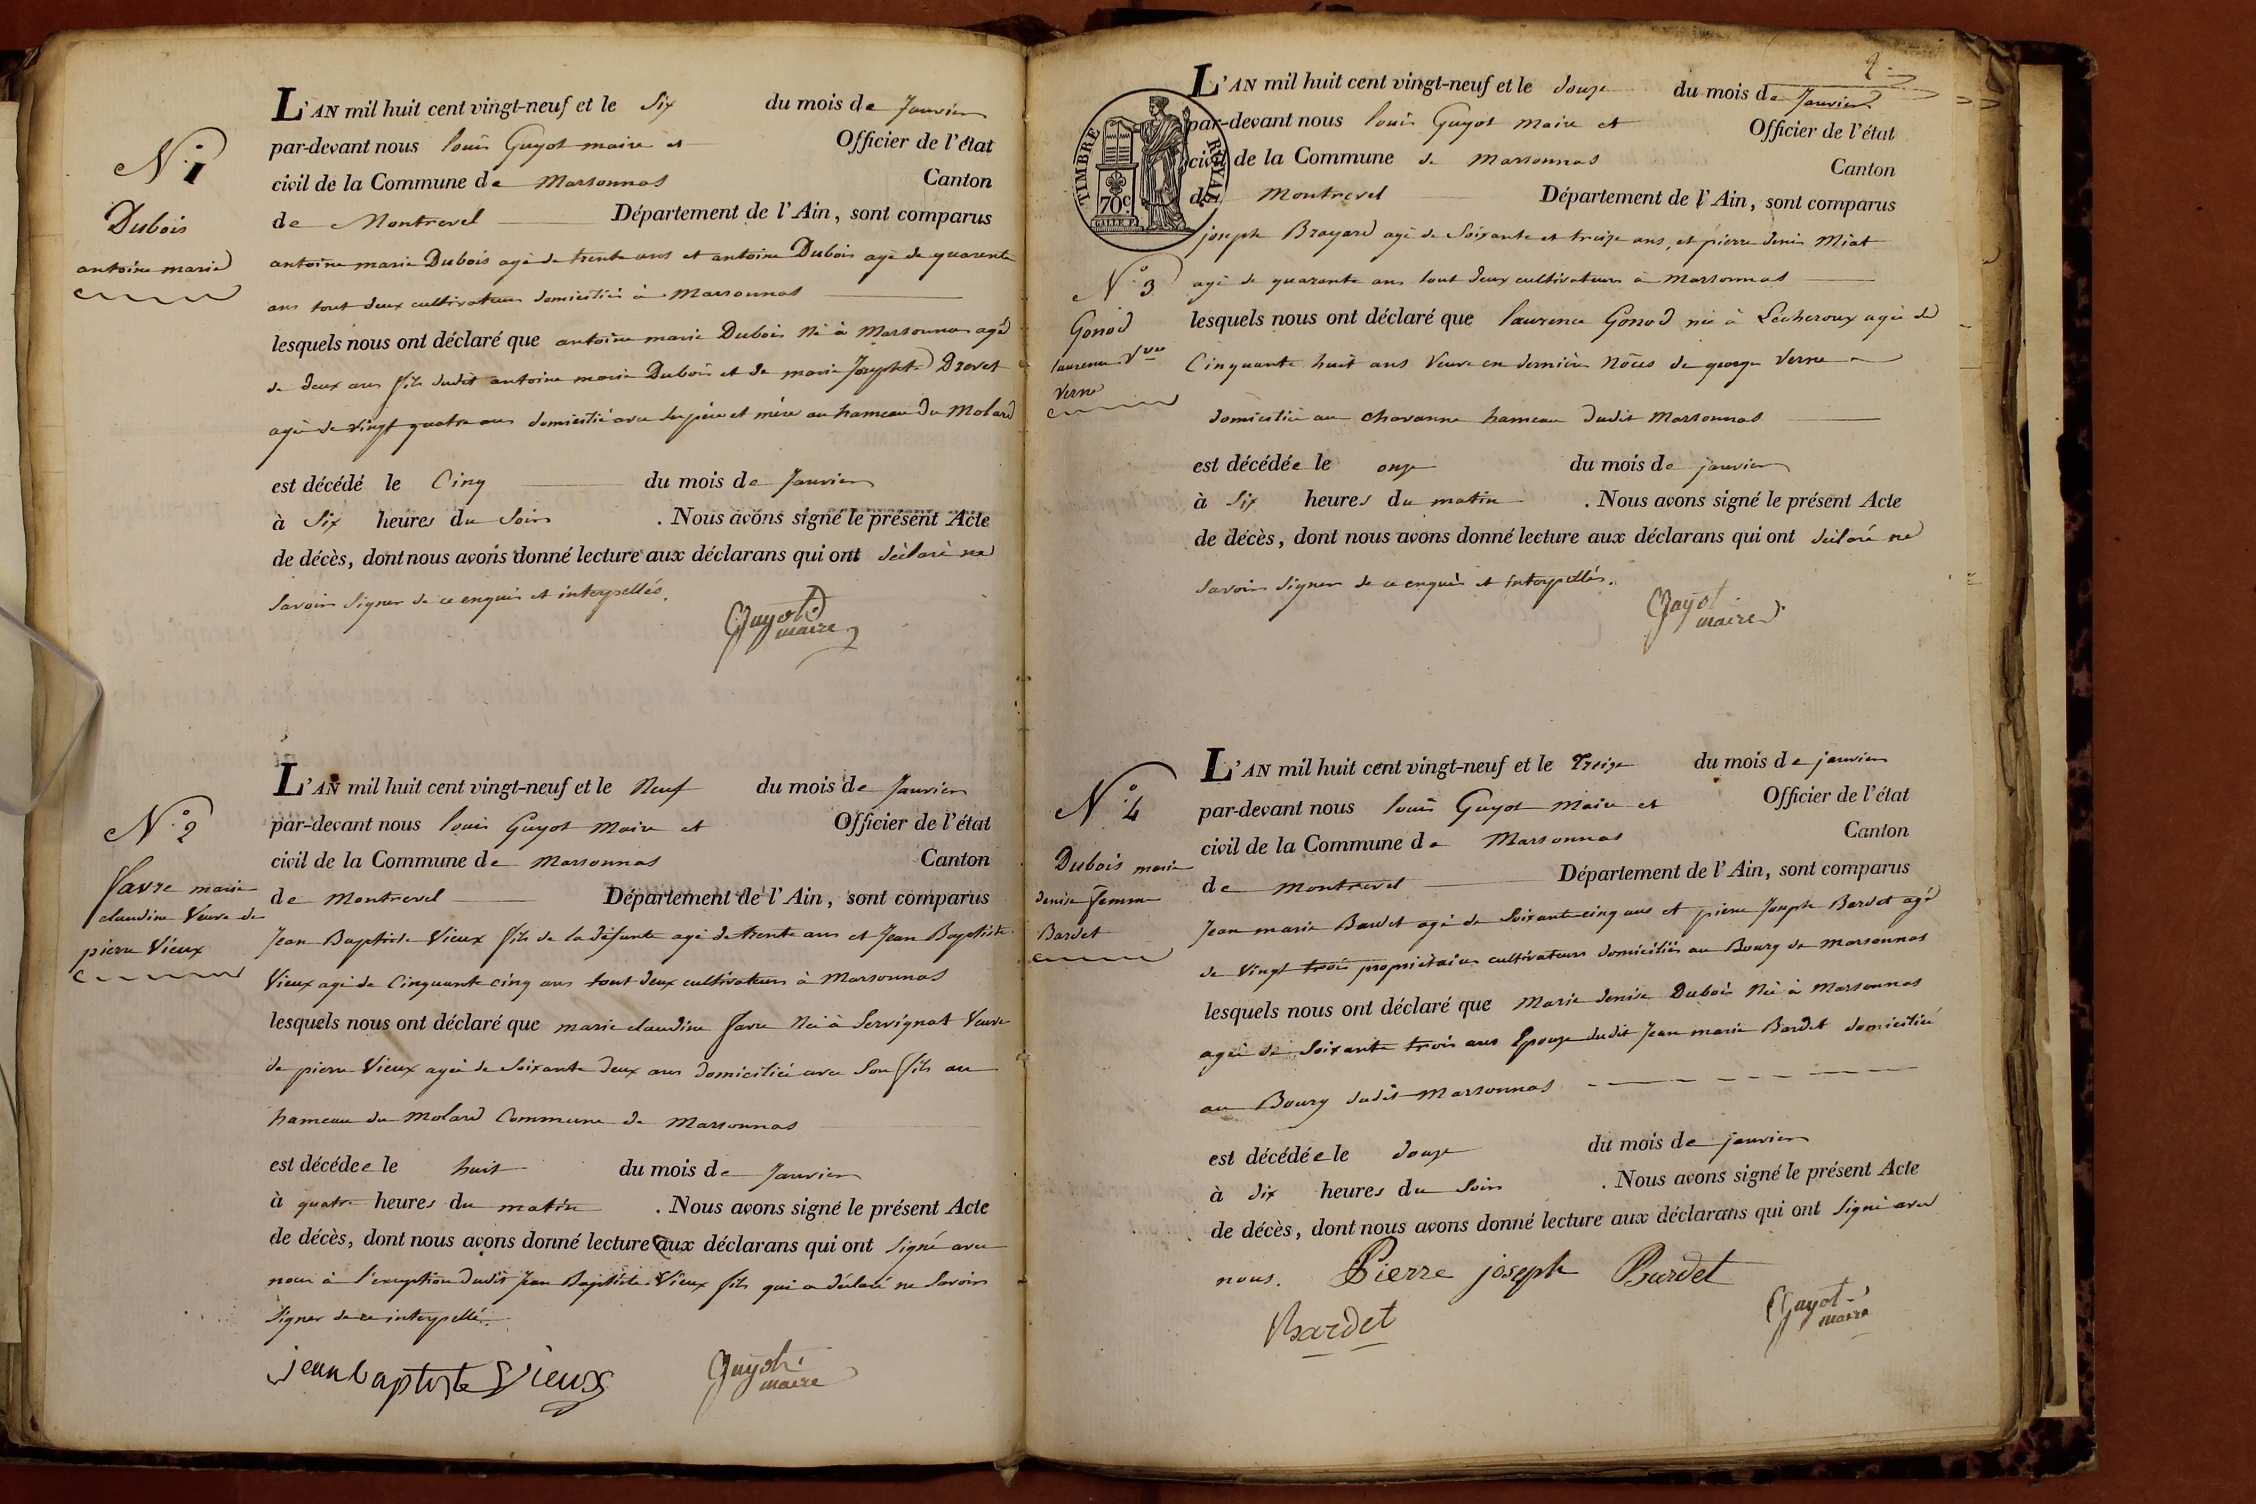 N.o 1
Dubois
antoine marie
L'AN mil huit cent vingt-neuf et le Six du mois de Janvier
par-devant nous louis Guyot maire et Officier de l'état
civil de la Commune de Marsonnas Canton
de Montrevel Département de l'Ain, sont comparus
antoine marie Dubois agé de trente ans et antoine Dubois agé de quarente
ans tout deux cultivateurs domiciliés à Marsonnas
lesquels nous ont déclaré que antoine marie Dubois Né à Marsonnas agé
de deux ans fils dudit antoine marie Dubois et de marie Josephte Drevet
agée de vingt quatre ans domicilié avec ses père et mère au hameau du Molard
est décédé le Cinq du mois de Janvier
à Six heures du Soir . Nous avons signé le présent Acte
de décès, dont nous avons donné lecture aux déclarans qui ont déclaré ne
Savoir Signer de ce enquis et interpellés.
Guyot
maire
N.o 2
favre marie
claudine Veuve de
pierre Vieux
L'AN mil huit cent vingt-neuf et le Neuf du mois de Janvier
par-devant nous louis Guyot Maire et Officier de l'état
civil de la Commune de Marsonnas Canton
de Montrevel Département de l'Ain, sont comparus
Jean Baptiste Vieux fils de la défunte agé de trente ans et Jean Baptiste
Vieux agé de Cinquante cinq ans tout deux cultivateurs à Marsonnas
lesquels nous ont déclaré que marie claudine favre Née à Servignat Veuve
de pierre Vieux agée de Soixante deux ans domiciliée avec Son fils au
hameau du Molard Commune de Marsonnas
est décédée le huit du mois de Janvier
à quatre heures du matin . Nous avons signé le présent Acte
de décès, dont nous avons donné lecture aux déclarans qui ont Signé avec
nous à l'exception dudit Jean Baptiste Vieux fils qui a déclaré ne Savoir
Signer de ce interpellé.
jean baptiste Vieux
Guyot
maire
2
TIMBRE ROYAL
70c
L'AN mil huit cent vingt-neuf et le douze du mois de Janvier
par-devant nous louis Guyot Maire et Officier de l'état
civil de la Commune de Marsonnas Canton
de Montrevel Département de l'Ain, sont comparus
joseph Brayard agé de Soixante et treize ans, et pierre denis Miat
N.o 3
agé de quarante ans tout deux cultivateurs à Marsonnas
Gonod
laurence Vve
Verne
lesquels nous ont déclaré que laurence Gonod née à Lécheroux agée de
Cinquante huit ans Veuve en dernière Nôces de george Verne
domiciliée au chavanne hameau dudit Marsonnas
est décédée le onze du mois de janvier
à Six heures du matin . Nous avons signé le présent Acte
de décès, dont nous avons donné lecture aux déclarans qui ont déclaré ne
Savoir Signer de ce enquis et interpellés.
Guyot
maire
N.o 4
Dubois marie
denise femme
Bardet
L'AN mil huit cent vingt-neuf et le Treize du mois de janvier
par-devant nous louis Guyot Maire et Officier de l'état
civil de la Commune de Marsonnas Canton
de Montrevel Département de l'Ain, sont comparus
Jean marie Bardet agé de Soixante cinq ans et pierre Joseph Bardet agé
de Vingt trois propriétaires cultivateurs domiciliés au Bourg de Marsonnas
lesquels nous ont déclaré que Marie denise Dubois Née à Marsonnas
agée de Soixante trois ans Epouse dudit Jean marie Bardet domiciliée
au Bourg dudit Marsonnas
est décédée le douze du mois de janvier
à dix heures du Soir . Nous avons signé le présent Acte
de décès, dont nous avons donné lecture aux déclarans qui ont Signé avec
nous. Pierre joseph Bardet
Bardet
Guyot
maire